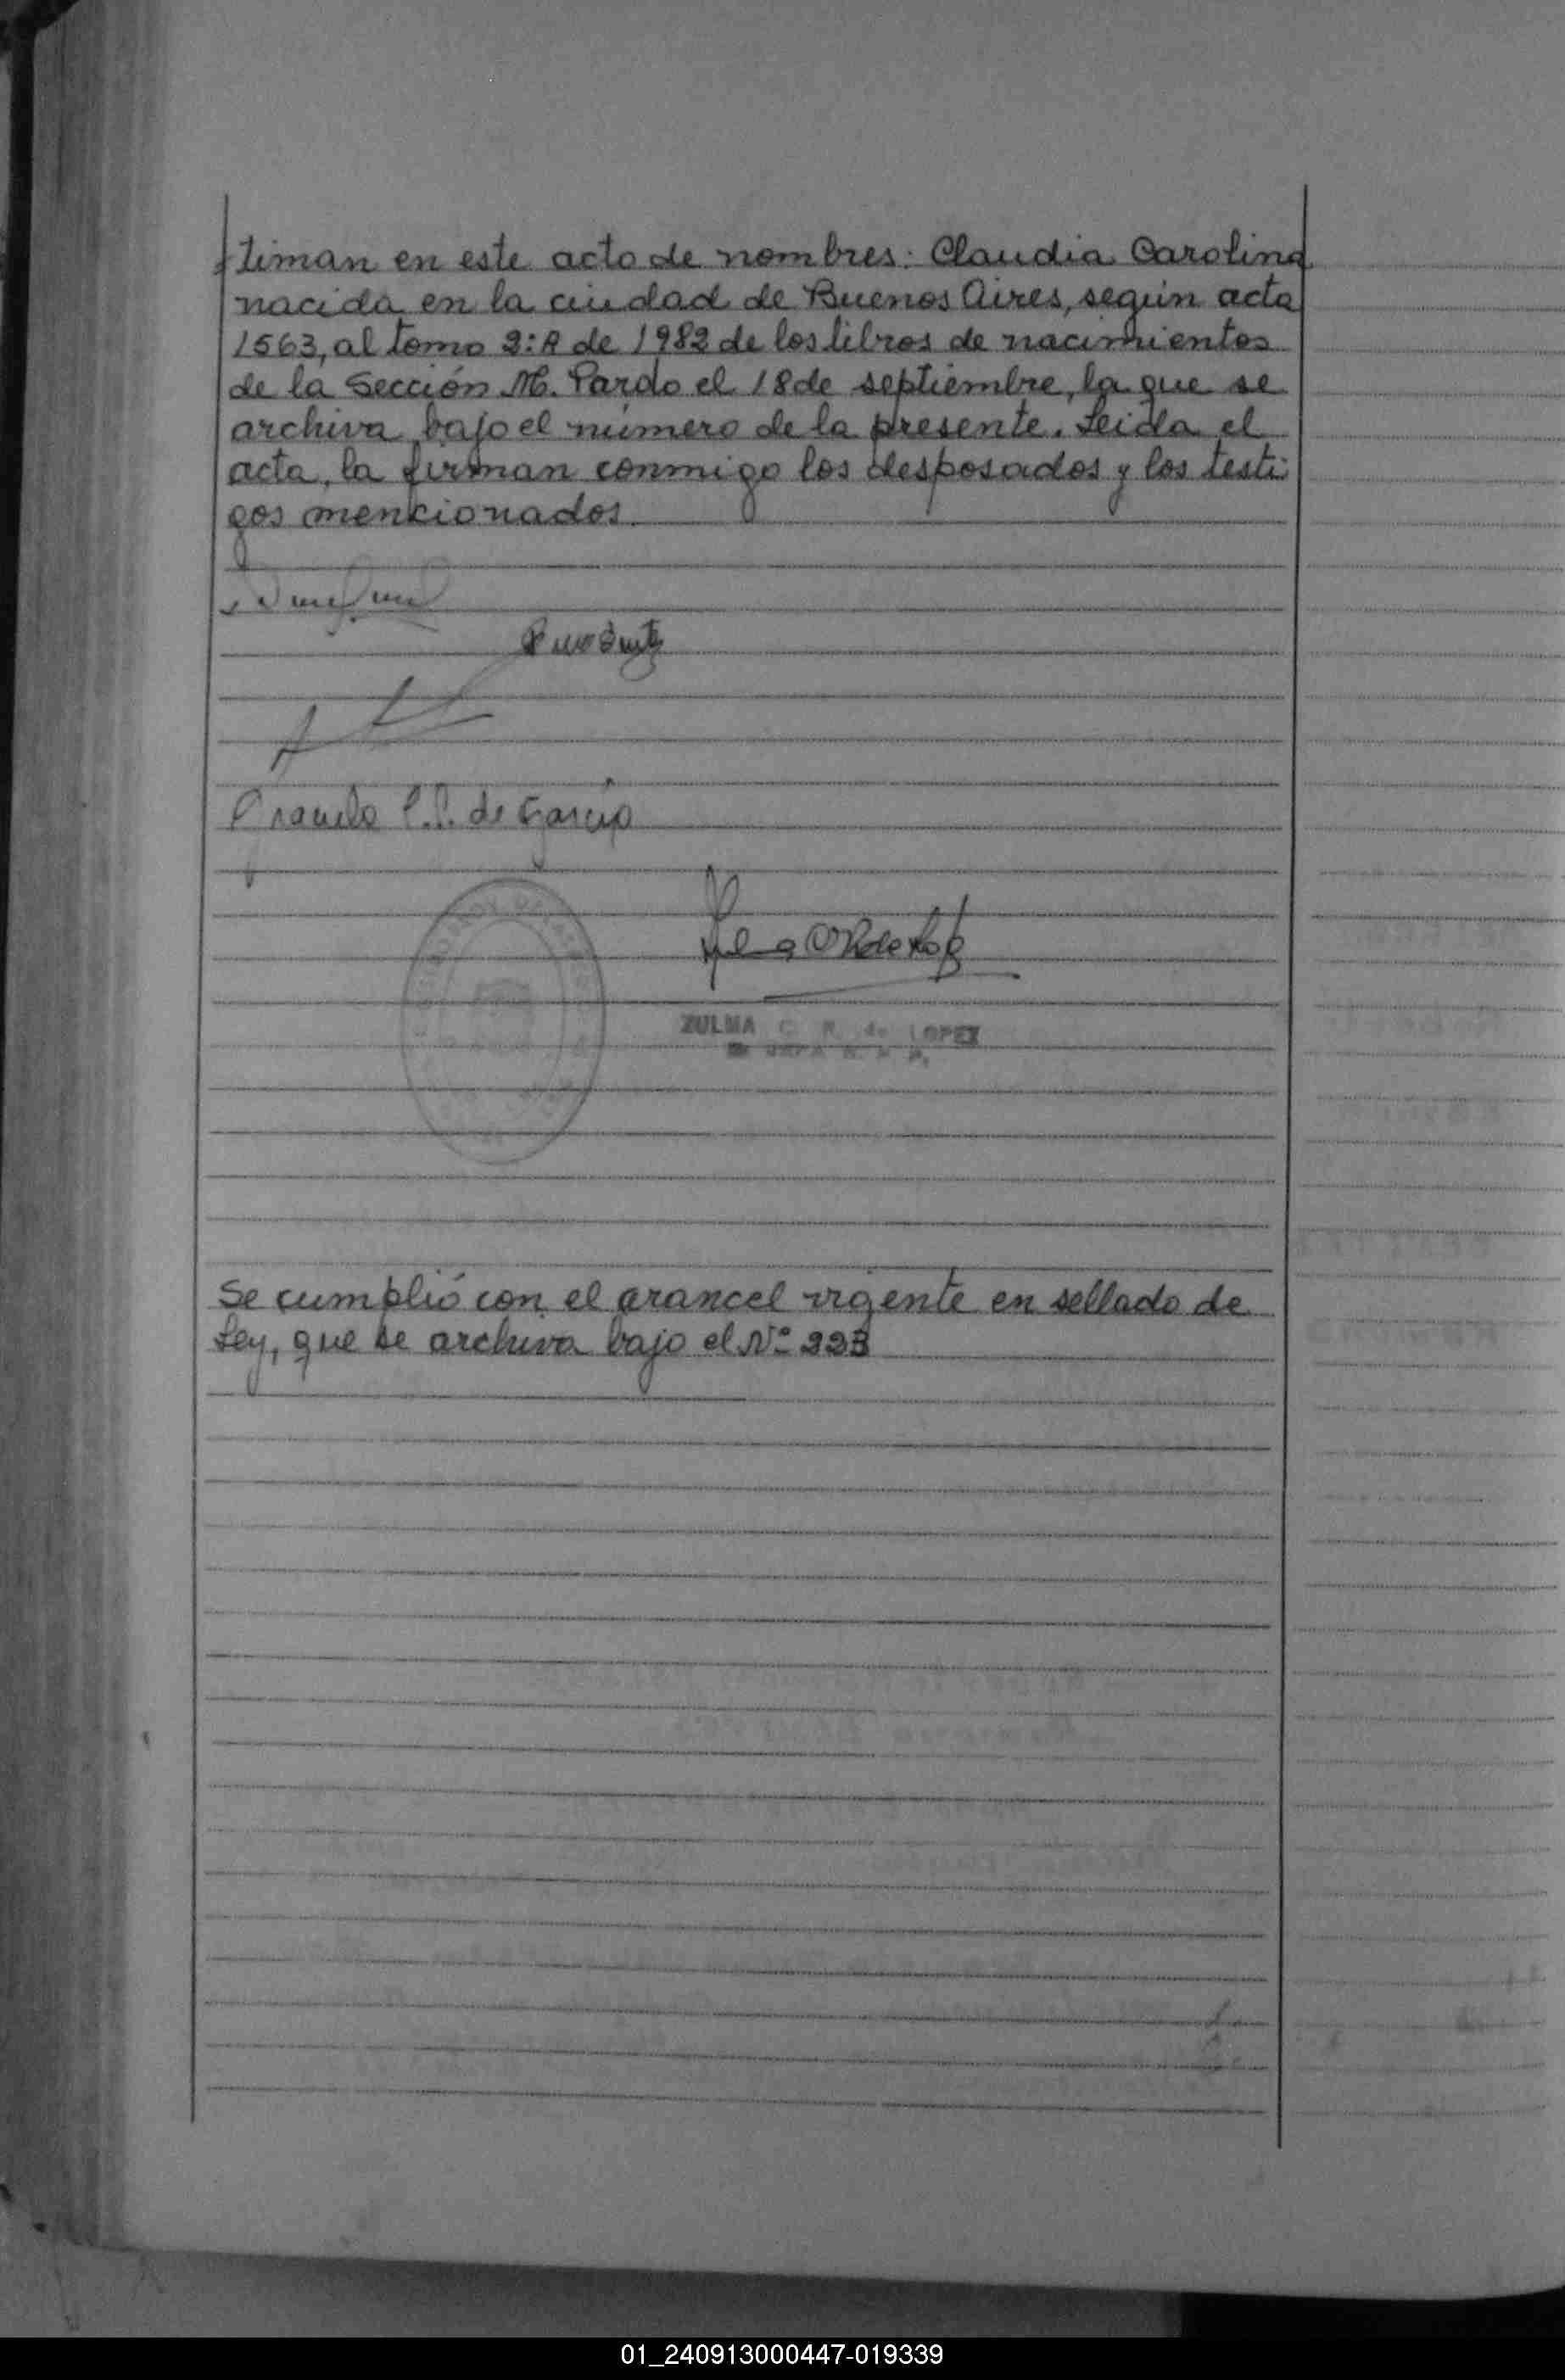 timan en este acto de nombres: Claudia Carolina
nacida en la ciudad de Buenos Aires, según acta
1563, al tomo 2:A de 1982 de los libros de nacimientos
de la Sección M. Pardo el 18 de septiembre, la que se
archiva bajo el número de la presente. Leida el
acta, la firman conmigo los desposados y los testi
gos mencionados.
de Garcia
ZULMA C. R. de LOPEZ
Se cumplió con el arancel vigente en sellado de
Ley, que se archiva bajo el Nº 223
01_240913000447-019339